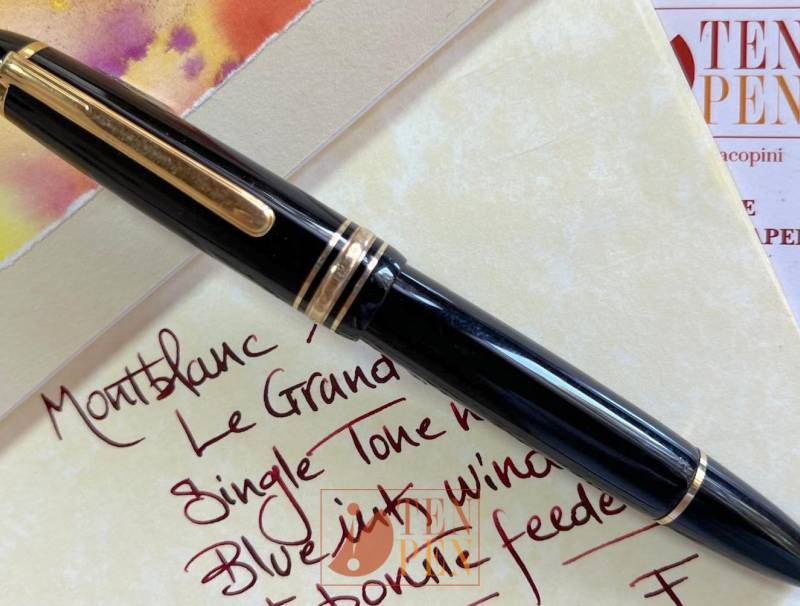 TEN
PEN
acopini
E
APE
Montblanc
Le Grand
Single Tone
Blue ink wind
bonite feede
F
TEN
PEN